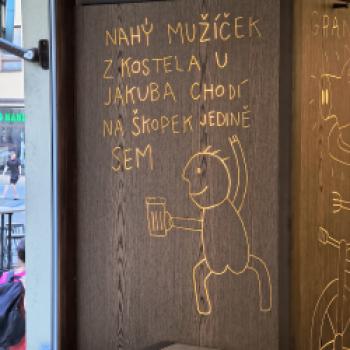 NAHÝ MUŽÍČEK
Z KOSTELA U
JAKUBA CHODÍ
NA ŠKOPEK JEDINĚ
SEM
GRAN